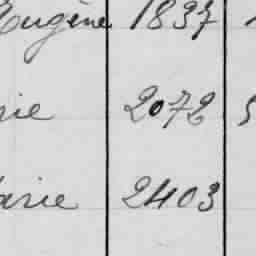 Eugène 1837
rie 2072 5
arie 2403